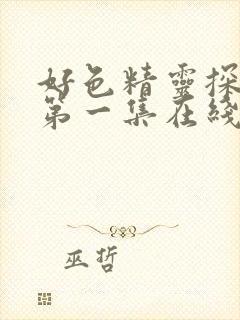 好色精靈探
第一集在綫
巫哲